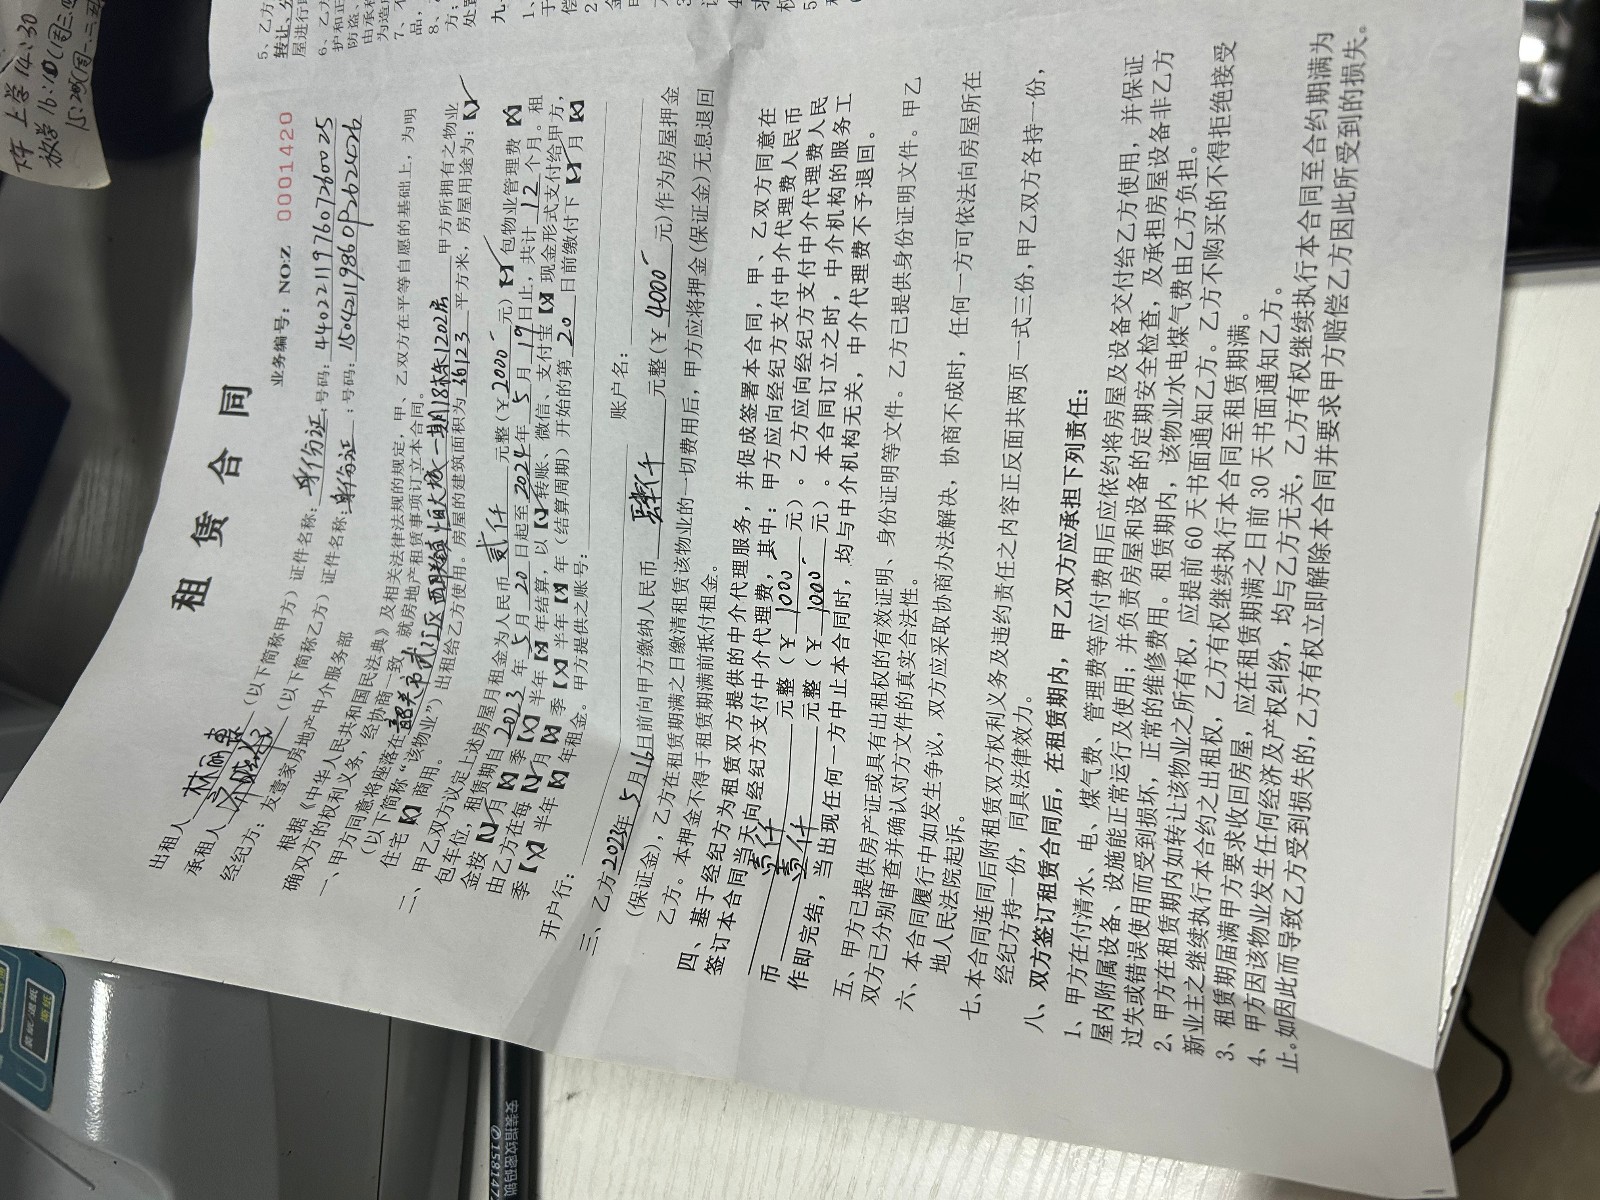 租赁合同
业务编号：NO:Z 0001420
出租人 林丽 (以下简称甲方) 证件名称：身份证 号码：440221197607260025
承租人 (以下简称乙方) 证件名称：身份证 ：号码：
经纪方：友登家房地产中介服务部
根据《中华人民共和国民法典》及相关法律法规的规定，甲、乙双方在平等自愿的基础上，为明
确双方的权利义务，经协商一致，就房地产租赁事项订立本合同。
一、甲方同意将座落在 韶关市武江区西联镇恒大城一期18栋1202房 甲方所拥有之物业
(以下简称“该物业”) 出租给乙方使用。房屋的建筑面积为 平方米，房屋用途为：【✓】
住宅【X】商用。
二、甲乙双方议定上述房屋月租金为人民币 贰仟 元整(￥2000 元)【✓】包物业管理费【X】
包车位，租赁期自 2023 年 5 月 20 日起至 2024 年 5 月 19 日止，共计 12 个月。租
金按【✓】月【X】季【X】半年【X】年结算，以【✓】转账、微信、支付宝【X】现金形式支付给甲方，
由乙方在每【✓】月【X】季【X】半年【X】年（结算周期）开始的第 20 日前缴付下【✓】月【X】
季【X】半年【X】年租金。甲方提供之账号：
开户行： 账户名：
三、乙方2023年5月16日前向甲方缴纳人民币 肆仟 元整(￥ 4000 元)作为房屋押金
(保证金)，乙方在租赁期满之日缴清租赁该物业的一切费用后，甲方应将押金(保证金)无息退回
乙方。本押金不得于租赁期满前抵付租金。
四、基于经纪方为租赁双方提供的中介代理服务，并促成签署本合同，甲、乙双方同意在
签订本合同当天向经纪方支付中介代理费，其中：甲方应向经纪方支付中介代理费人民币
壹仟 元整（￥ 1000 元）。乙方应向经纪方支付中介代理费人民
币 壹仟 元整（￥ 1000 元）。本合同订立之时，中介机构的服务工
作即完结，当出现任何一方中止本合同时，均与中介机构无关，中介代理费不予退回。
五、甲方已提供房产证或具有出租权的有效证明、身份证明等文件。乙方已提供身份证明文件。甲乙
双方已分别审查并确认对方文件的真实合法性。
六、本合同履行中如发生争议，双方应采取协商办法解决，协商不成时，任何一方可依法向房屋所在
地人民法院起诉。
七、本合同连同后附租赁双方权利义务及违约责任之内容正反面共两页一式三份，甲乙双方各持一份，
经纪方持一份，同具法律效力。
八、双方签订租赁合同后，在租赁期内，甲乙双方应承担下列责任：
1、甲方在付清水、电、煤气费、管理费等应付费用后应依约将房屋及设备交付给乙方使用，并保证
屋内附属设备、设施能正常运行及使用；并负责房屋和设备的定期安全检查，及承担房屋设备非乙方
过失或错误使用而受到损坏，正常的维修费用。租赁期内，该物业水电煤气费由乙方负担。
2、甲方在租赁期内如转让该物业之所有权，应提前 60 天书面通知乙方。乙方不购买的不得拒绝接受
新业主之继续执行本合约之出租权，乙方有权继续执行本合同至租赁期满。
3、租赁期届满甲方要求收回房屋，应在租赁期满之日前 30 天书面通知乙方。
4、甲方因该物业发生任何经济及产权纠纷，均与乙方无关，乙方有权继续执行本合同至合约期满为
止。如因此而导致乙方受到损失的，乙方有权立即解除本合同并要求甲方赔偿乙方因此所受到的损失。
5、乙方
转让、分
屋进行
6、乙方
护和正
防盗、
由承租
为造成
7、不
品，
8、
方；
处置
九、
上学 14:30
放学
安装指纹密码锁